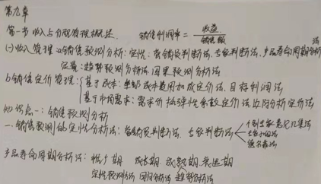 第九章
第一步 收入与分配管理概述. 销售利润率= 收益/销售额
(一)收入管理 a销售预测分析: 定性: 营销员判断法. 专家判断法. 产品寿命周期分析法
定量: 趋势预测分析法 因果预测分析法
b销售定价管理: 基于成本: 全部成本费用加成定价法. 目标利润法
基于市场需求: 需求价格弹性系数定价法 边际分析定价法
知识点一: 销售预测分析
一. 销售预测的定性分析法: 营销员判断法 专家判断法 个别专家意见汇集法
专家小组法
德尔菲法
产品寿命周期分析法: 推广期 成长期 成熟期 衰退期